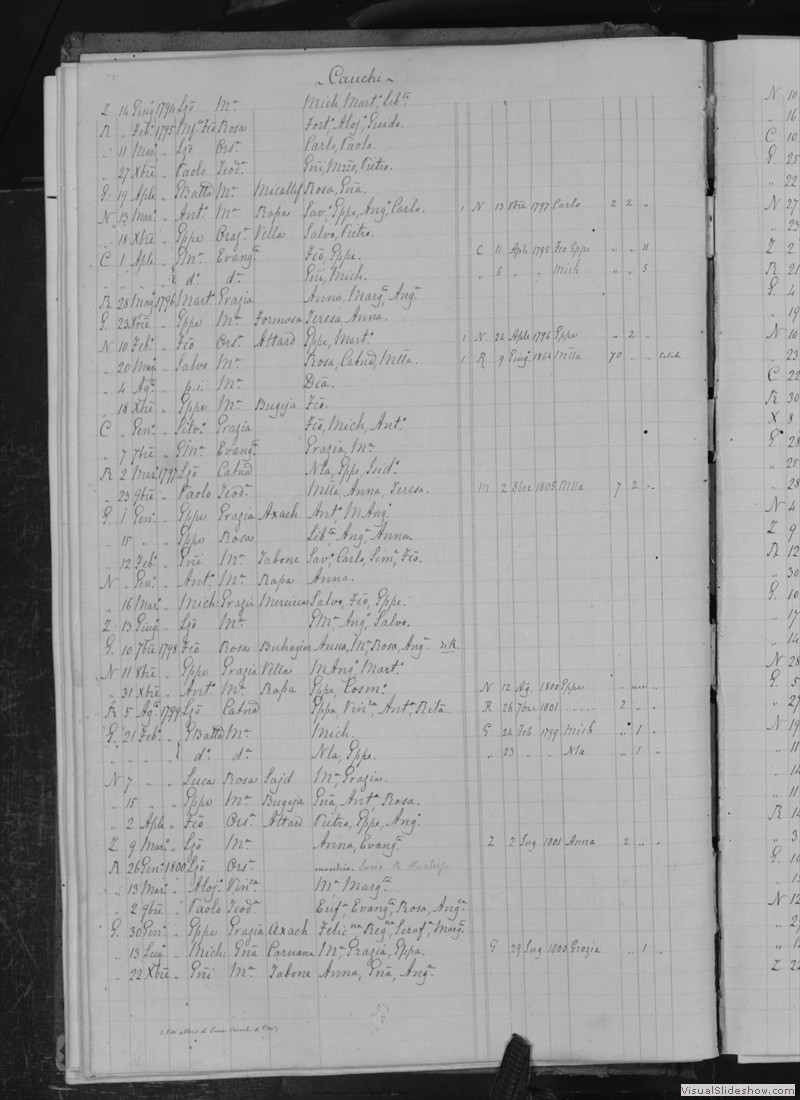 ~ Cauchi ~
Z 14 Giug 1794 Ljō Mª Mich, Martª, Libª
R „ Febº 1795 Mſº Fiō Rosa Fortª, Alojª, Guido.
„ 11 Marº „ Ljō Orsª Carlo, Paolo.
„ 27 Xbrē „ Paolo Teodª Gñi, Pietro.
G 19 Aple „ GBatta Mª Micallef Rosa, Gñā.
N 13 Marº „ Antº Mª Rapa Savº, Gppe, Angº, Carlo. 1 N 13 1797 Carlo 2 2 „
„ 18 Xbrē „ Gppe Orasª Vella Salvo, Pietro.
C 1 Aple „ GMª Evangª Fiō, Gppe. C 11 Aple 1795 Fiō Gppe „ „ 11
„ „ „ „ { dº dª Gñi, Mich. „ 6 „ „ Mich „ „ 5
R 28 Magº 1796 Mart. Grazia Anna, Margª, Angª
G 23 „ Gppe Mª Formosa Teresa, Anna.
N 10 Febº „ Fiō Orsª Attard Gppe, Martº 1 N 24 Aple 1796 Gppe „ 2 „
„ 20 Magº „ Salvo Mª Rosa, Catnā, Mlla, 1 R 9 Giugº 1864 Mlla 70 „ „
„ 4 Agº „ p.i. Mª Deā.
„ 18 Xbrē „ Gppe Mª Bugeja Fiō.
C „ Genº „ Silvº Grazia Fiō, Mich, Antº
„ 7 7brē „ GMª Evangª Grazia, Mª
R 2 Marº 1797 Ljō Catnā Nla, Gppe, Isidº
„ 23 9brē „ Paolo Teodª Mlla, Anna, Teresa. M 2 8bre 1805 Mlla 7 2 „
G 1 Genº „ Gppe Grazia Axach Antº, MAngª
„ 15 „ „ Gppe Rosa Libª, Angª, Anna.
„ 12 Febº „ Gñi Mª Tabone Savº, Carlo, Simº, Fiō.
N „ Genº „ Antº Mª Rapa Anna.
„ 16 Marº „ Mich. Grazia Mercieca Salvo, Fiō, Gppe.
Z 13 Giugº „ Ljō Mª GMª, Angº, Salvo.
G 10 7brē 1798 Fiō Rosa Buhagiar Anna, Mª, Rosa, Angª n.R.
N 11 8brē „ Gppe Grazia Vella MAngª, Martª
„ 31 Xbrē „ Antº Mª Rapa Gppe, Cosmº N 12 Agº 1800 Gppe „ „
R 5 Agº 1799 Ljō Catnā Gppa, Vinzª, Antª, Rita. R 26 7bre 1801 . . . . . . 2 „ „
G 21 Febº „ GBatta Mª Mich. G 24 Feb 1799 Mich „ 1 „
„ „ „ „ { dº dª Nla, Gppe. „ 23 „ „ Nla „ 1 „
N 7 „ „ Luca Rosa Sajd Mª, Grazia.
„ 15 „ „ Gppe Mª Bugeja Gñā, Antª, Rosa.
„ 2 Aple „ Fiō Orsª Attard Pietro, Gppe, Angº
Z 9 Marº „ Ljō Mª Anna, Evangª Z 2 Lug 1801 Anna 2 „ „
R 26 Genº 1800 Ljō Orsª
„ 13 Marº „ Alojº Vinzª Mª, Margª
„ 2 9brē „ Paolo Teodª Eufª, Evangª, Rosa, Angª
G 30 Genº „ Gppe Grazia Axach Felicna, Regna, Serafª, Margª
„ 13 Lugº „ Mich Gñā Caruana Mª, Grazia, Gppa. G 29 Lug 1800 Grazia „ 1 „
„ 22 Xbrē „ Gñi Mª Tabone Anna, Gñā, Angª
VisualSlideshow.com
N 10
„ 16
C 10
G 25
„ 22
N 27
„ 23
Z 2
R 21
G 4
„ 19
N 10
„ 23
C 22
R 30
X 8
G 28
„ 25
„ 28
N 4
Z 9
R 12
„ 30
G 10
„ 17
„ 14
N 28
G 5
„ 27
N 19
„ 11
„ 14
„ 11
R 14
„ 3
G 10
„ 13
N 12
„ 27
„ 12
Z 22